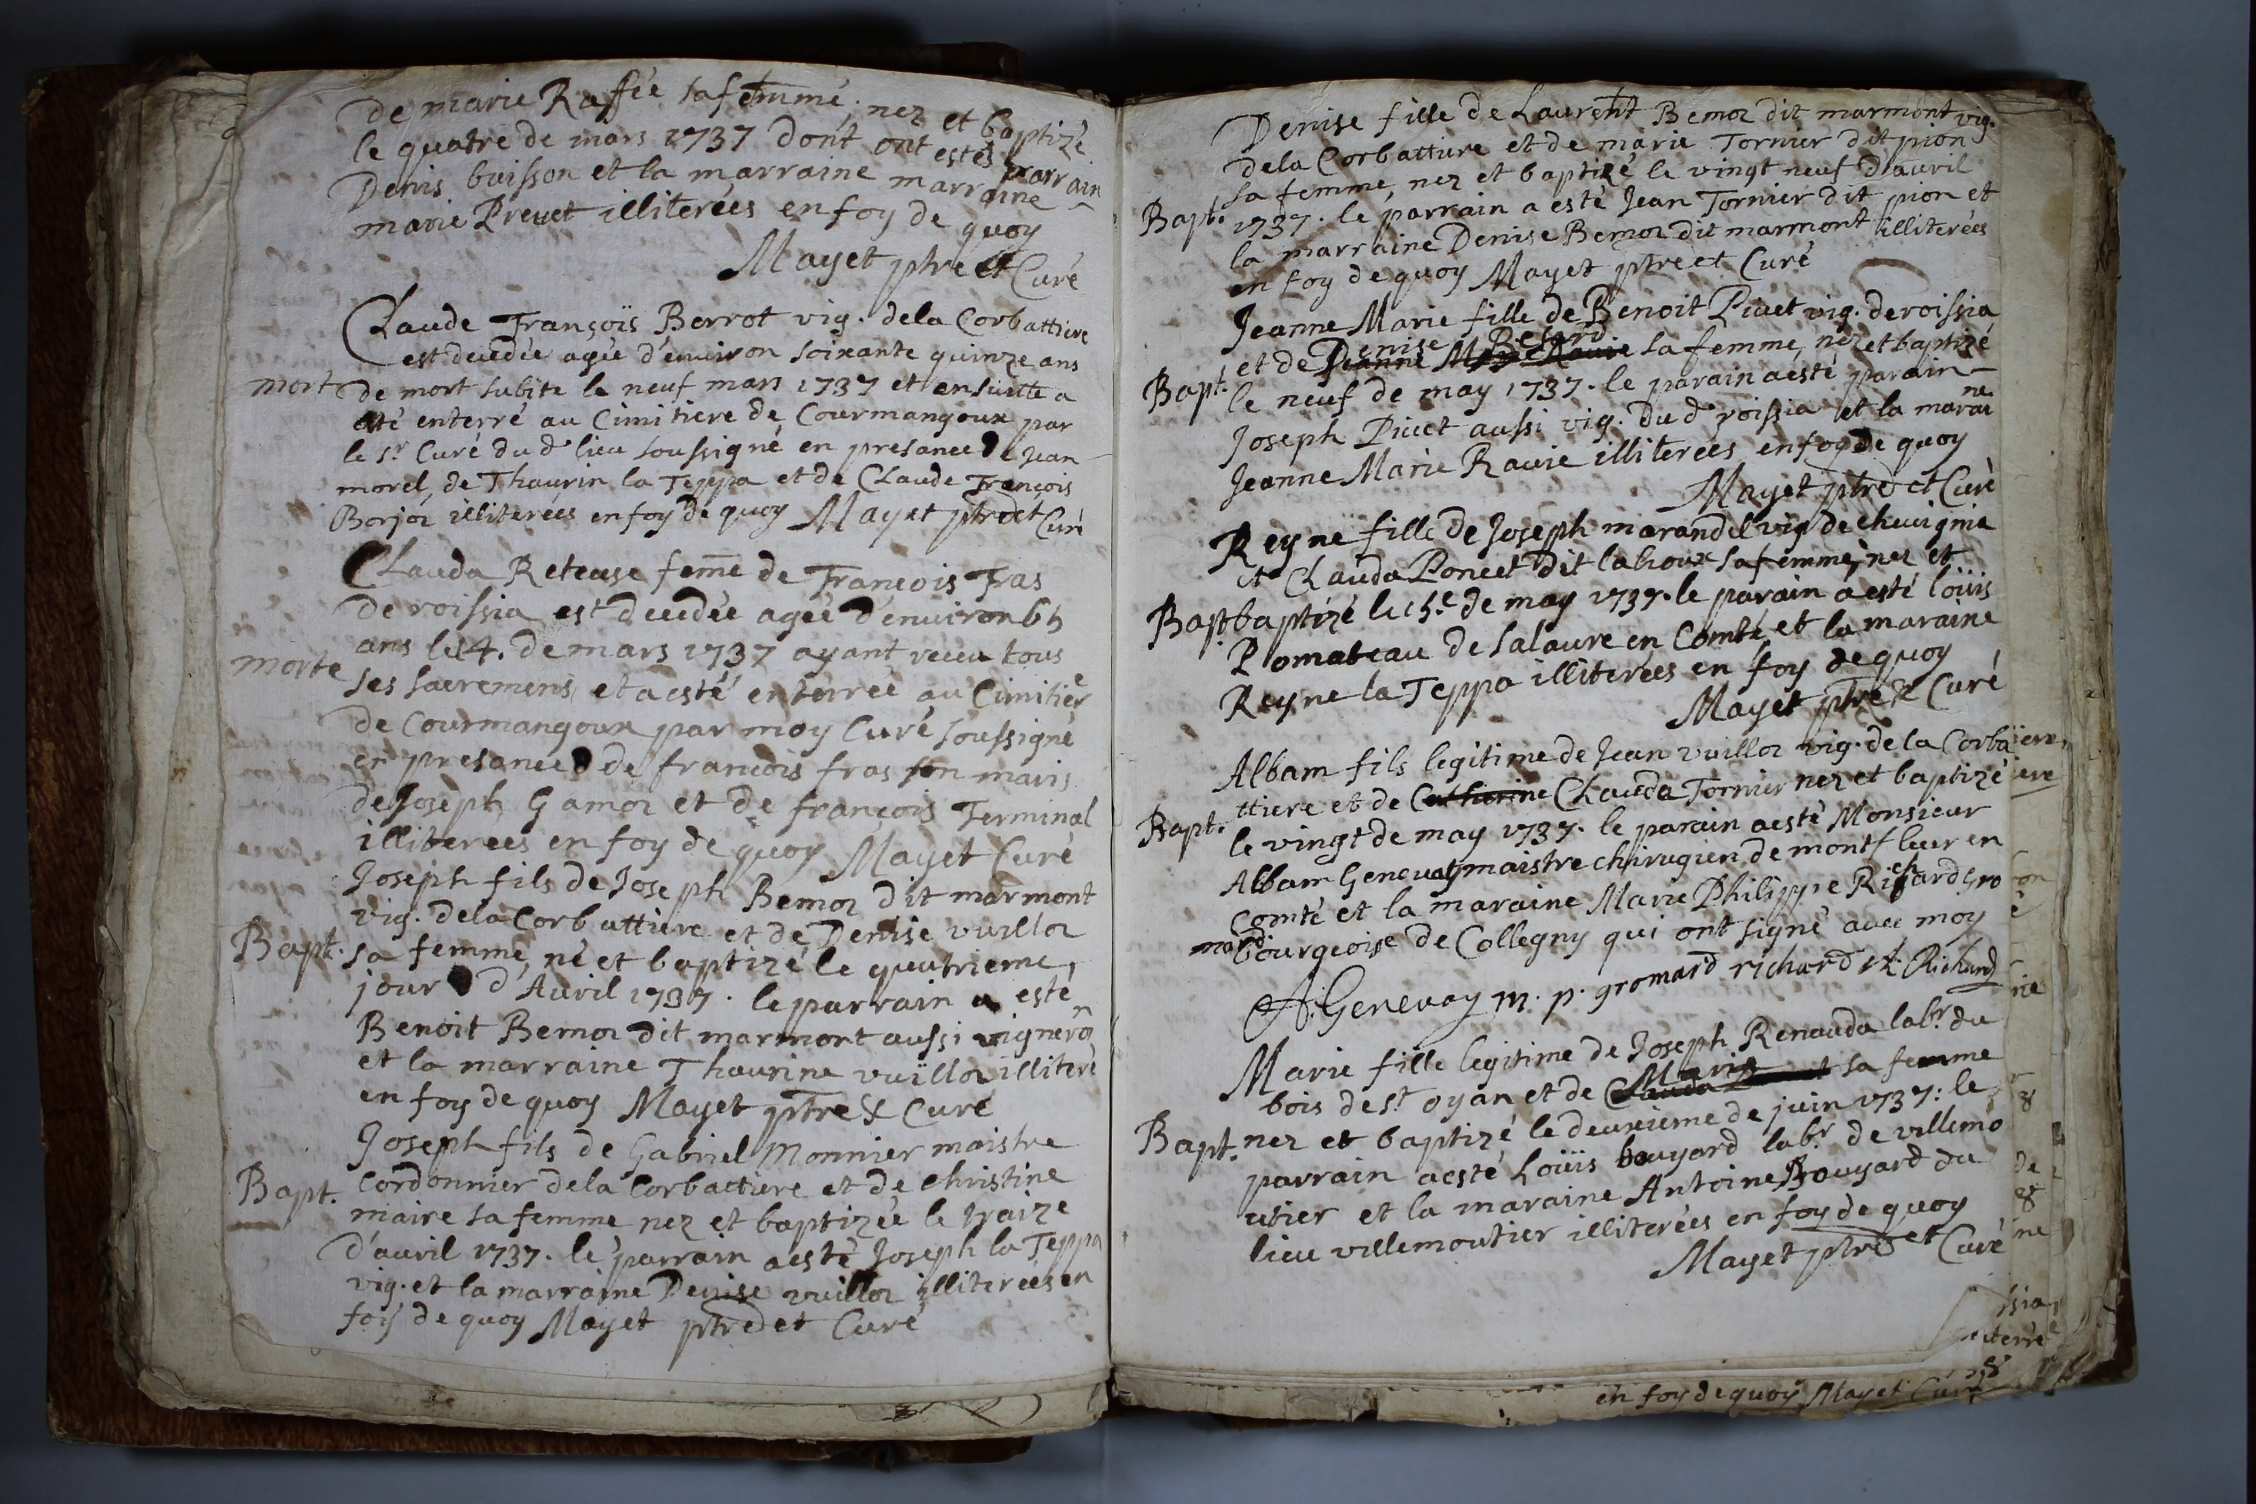 de marie Raffée sa femme, nez et baptizé
le quatre de mars 1737 dont ont estés parrain
Denis buisson et la marraine marraine
marie Prevet illiterées en foy de quoy
Mayet ptre et Curé
Claude François Borrot vig. dela Corbattiere
est decedée agée d'environ soixante quinze ans
mort de mort subite le neuf mars 1737 et ensuitte a
eté enterré au Cimitiere de Courmangoux par
le sr Curé du d lieu soussigné en presance de jean
morel, de Thaurin la Teppa et de Claude François
Borjor illiterées en foy de quoy Mayet ptre et Curé
Clauda Reteuse feme de François Fras
de roissia est decedée agée d'environ 65
ans le 4. de mars 1737 ayant receu tous
morte ses sacremens, et a esté enterrée au Cimitiere
de Courmangoux par moy Curé soussigné
en presance de françois fras son maris
de Joseph Gamor et de françois Terminal
illiterées en foy de quoy Mayet Curé
Joseph fils de Joseph Bemor dit marmont
vig. dela Corbattiere et de Denise vuillor
Bapt. sa femme, né et baptizé le quatrieme
jour d'Avril 1737. le parrain a esté
Benoit Bemor dit marmont aussi vigneron
et la marraine Thaurine vuïllor illiteré
en foy de quoy Mayet ptre & Curé
Joseph fils de Gabriel Monnier maistre
Bapt. Cordonnier dela Corbattiere et de christine
maire sa femme nez et baptizée le traize
d'avril 1737. le parrain a esté Joseph la Teppa
vig. et la marraine Denise vuillor illiterées en
foy de quoy Mayet ptre et Curé
Denise fille de Laurent Bemor dit marmont vig.
dela Corbattiere et de marie Tornier dit pion
sa femme, nez et baptizé le vingt neuf d'avril
Bapt. 1737. le parrain a esté Jean Tornier dit pion et
la marraine Denise Bemor dit marmont illiterées
en foy de quoy Mayet ptre et Curé
Jeanne Marie fille de Benoit Pivet vig. de roissia
et de Denise Besard sa femme, nez et baptizé
Bapt. le neuf de may 1737. le parain a esté parain
Joseph Pivet aussi vig. du d roissia et la maraine
Jeanne Marie Ravie illiterées en foy de quoy
Mayet ptre et Curé
Reyne fille de Joseph marandel vig de chevignia
et Clauda Poncet dit lahoux sa femme, nez et
Bapt baptizé le 15.e de may 1737. le parain a esté loüis
Pomateau de salavre en Comté, et la maraine
Reyne la Teppa illiterées en foy de quoy
Mayet ptre & Curé
Albam fils legitime de Jean vuillor vig. de la Corba
ttiere et de Catharine Clauda Tornier nez et baptizé
Bapt. le vingt de may 1737. le parain a esté Monsieur
Albam Genevay maistre chirugien de montfleur en
Comté et la maraine Marie Philippe Richard Gro
mard bourgeoise de Collegny qui ont signé avec moy
A. Genevay m. p. gromard richard Richard
Marie fille legitime de Joseph Renauda labr. du
bois de st. oyan et de Clauda Marie sa femme
Bapt. nez et baptizé le deuxieme de juin 1737: le
parrain a esté Loüis bouyard labr de villemo
utier et la maraine Antoine Bouyard du
lieu villemoutier illiterées en foy de quoy
Mayet ptre et Curé
en foy de quoy Mayet Curé